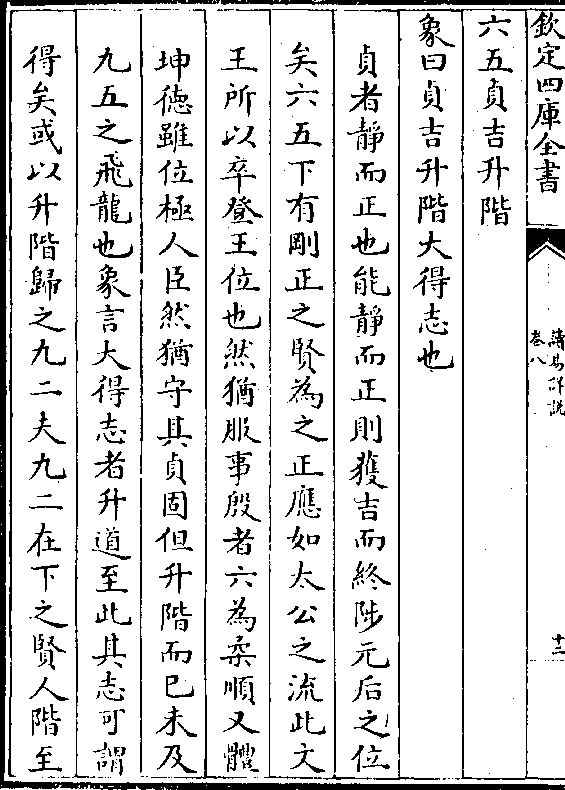 欽定四庫全書
讀易詳說
卷八
十二
六五貞吉升階
象曰貞吉升階大得志也
貞者靜而正也能靜而正則獲吉而終陟元后之位
矣六五下有剛正之賢為之正應如太公之流此文
王所以卒登王位也然猶服事殷者六為柔順又體
坤德雖位極人臣然猶守其貞固但升階而已未及
九五之飛龍也象言大得志者升道至此其志可謂
得矣或以升階歸之九二夫九二在下之賢人階至